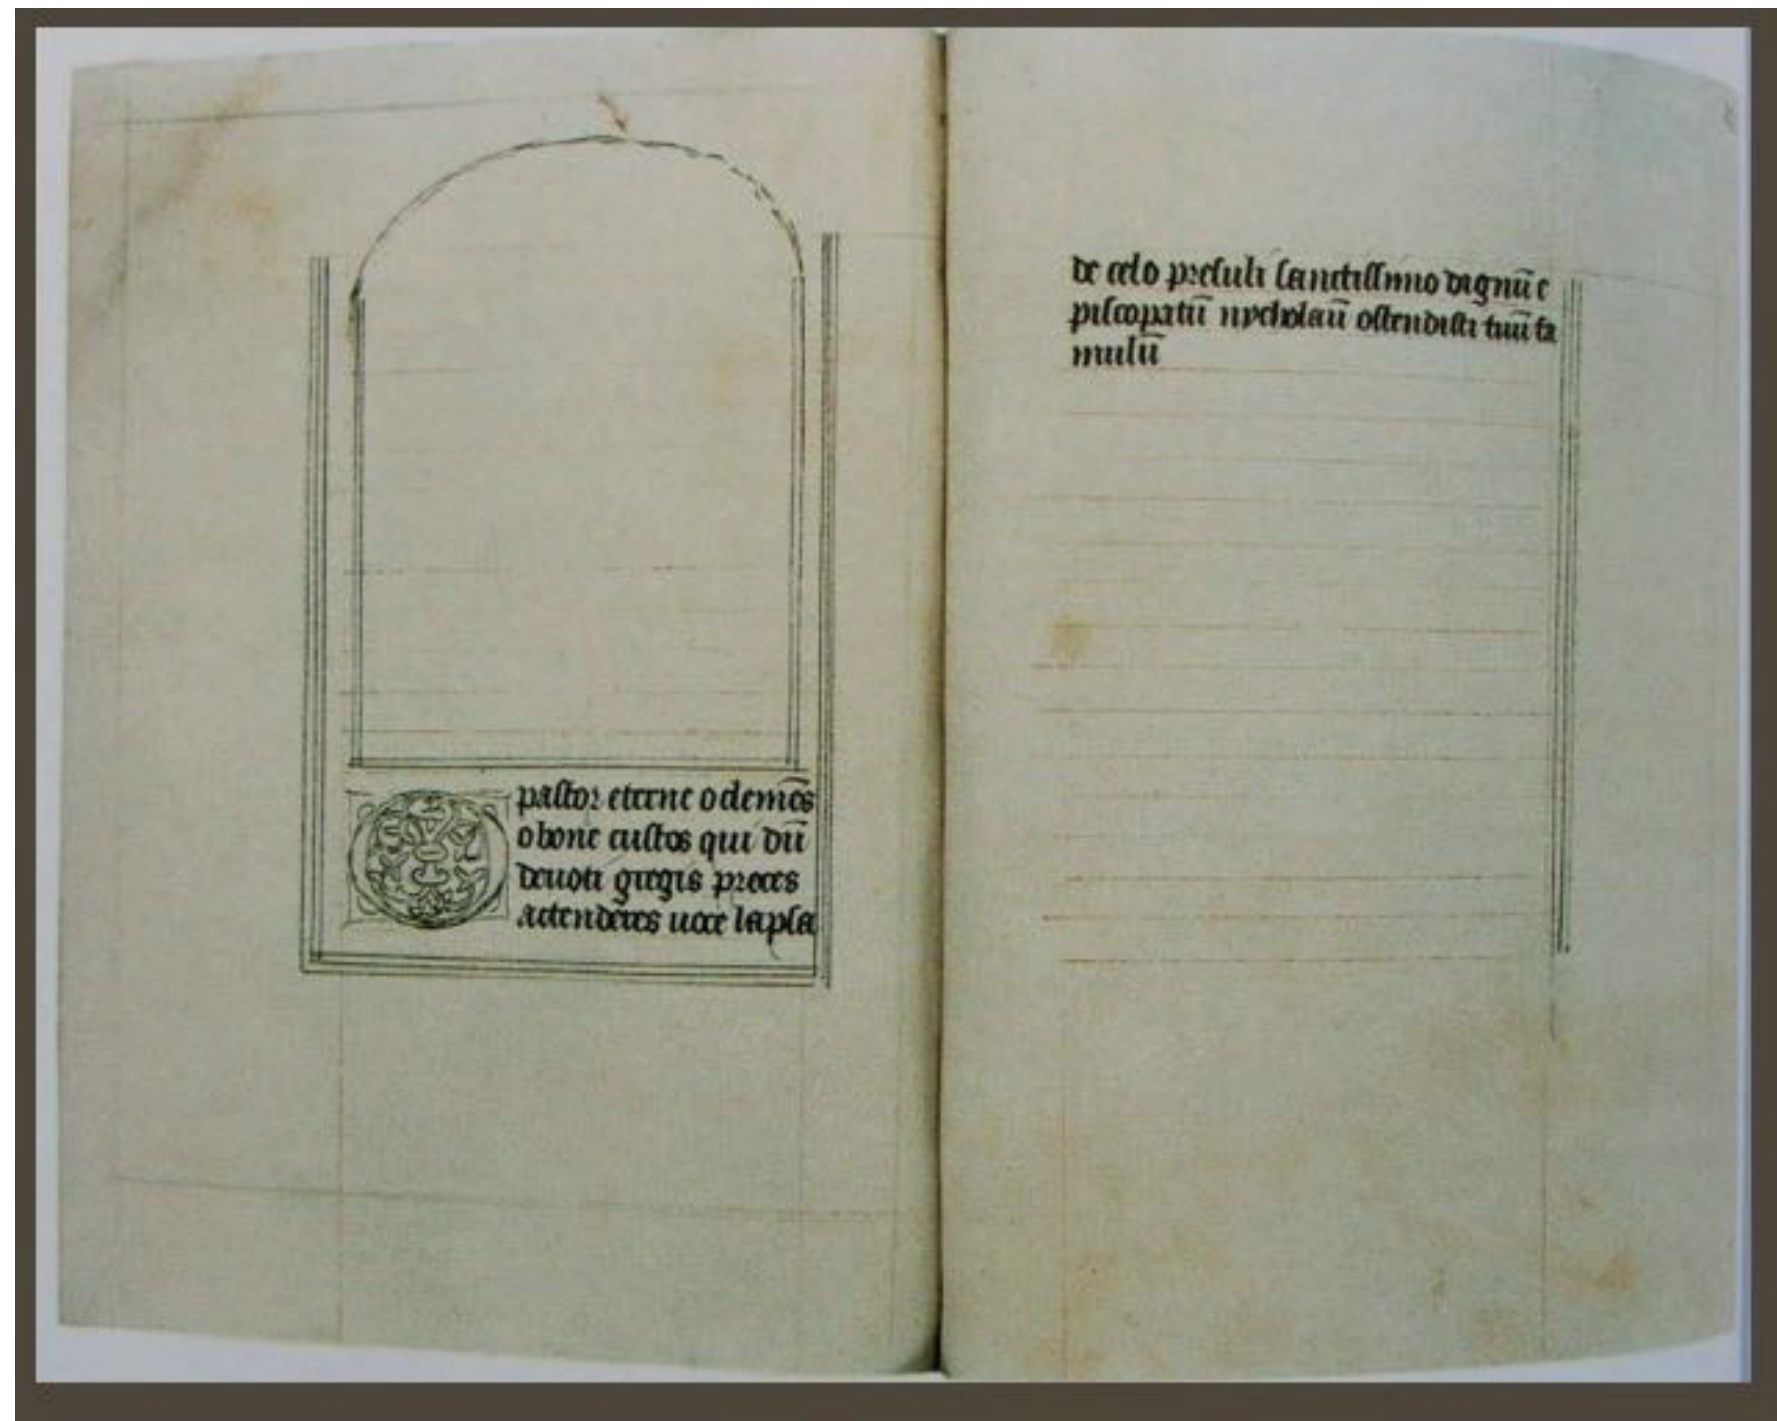 pastor eterne o clemēs
o bone custos qui dū
deuoti gregis preces
actenderes uoce lapsa
de celo presuli sanctissimo dignū e
piscopatū nycholaū ostendisti tuū fa
mulū